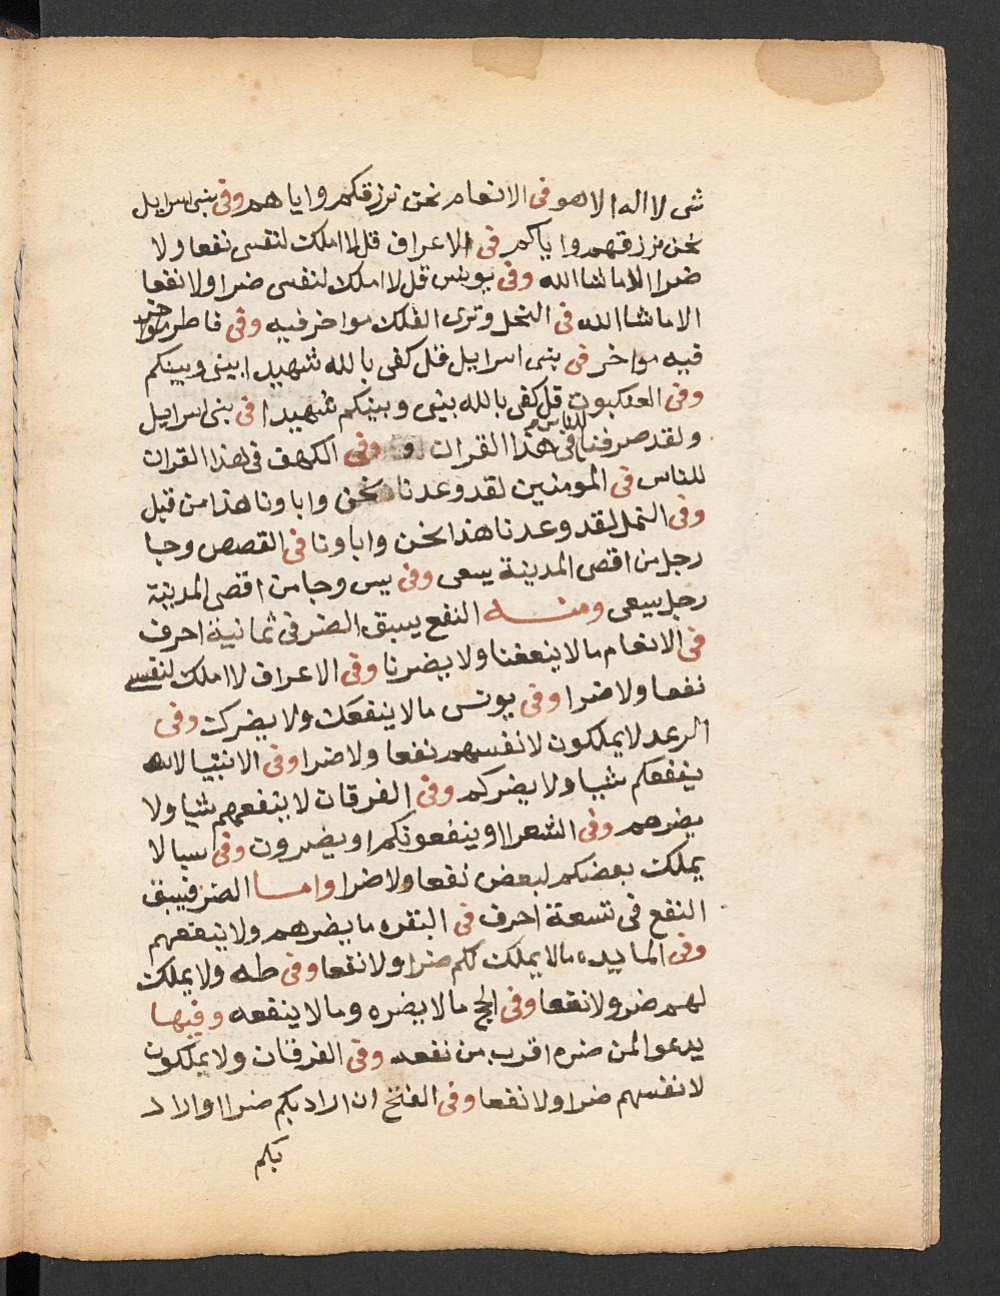 شى لا اله الا هو فى الانعام نحن نرزقكم واياهم وفى بنى اسرايل
نحن نرزقهم واياكم فى الاعراف قل لا املك لنفسى نفعا ولا
ضرا الا ما شا الله وفى يونس قل لا املك لنفسى ضرا ولا نفعا
الا ما شا الله فى النحل وترى الفلك مواخر فيه وفى فاطر
فيه مواخر فى بنى اسرايل قل كفى بالله شهيدا بينى وبينكم
وفى العنكبوت قل كفى بالله بينى وبينكم شهيدا فى بنى اسرايل
ولقد صرفنا للناس فى هذا القران وفى الكهف فى هذا القران
للناس فى المومنين لقد وعدنا نحن واباونا هذا من قبل
وفى النمل لقد وعدنا هذا نحن واباونا فى القصص وجا
رجل من اقصى المدينة يسعى وفى يس وجا من اقصى المدينة
رجل يسعى ومنه النفع يسبق الضر فى ثمانية احرف
فى الانعام ما لا ينفعنا ولا يضرنا وفى الاعراف لا املك لنفسى
نفعا ولا ضرا وفى يونس ما لا ينفعك ولا يضرك وفى
الرعد لا يملكون لانفسهم نفعا ولا ضرا وفى الانبيا لا
ينفعكم شيا ولا يضركم وفى الفرقان لا ينفعهم شيا ولا
يضرهم وفى الشعرا اوينفعونكم او يضرون وفى سبا لا
يملك بعضكم لبعض نفعا ولا ضرا واما الضر فيسبق
النفع فى تسعة احرف فى البقره ما يضرهم ولا ينفعهم
وفى المايده مالا يملك لكم ضرا ولا نفعا وفى طه ولا يملك
لهم ضر ولا نفعا وفى الحج مالا يضره ومالا ينفعه وفيها
يدعوا لمن ضره اقرب من نفعه وفى الفرقان ولا يملكون
لانفسهم ضرا ولا نفعا وفى الفتح ان اراد بكم ضرا او اراد
بكم